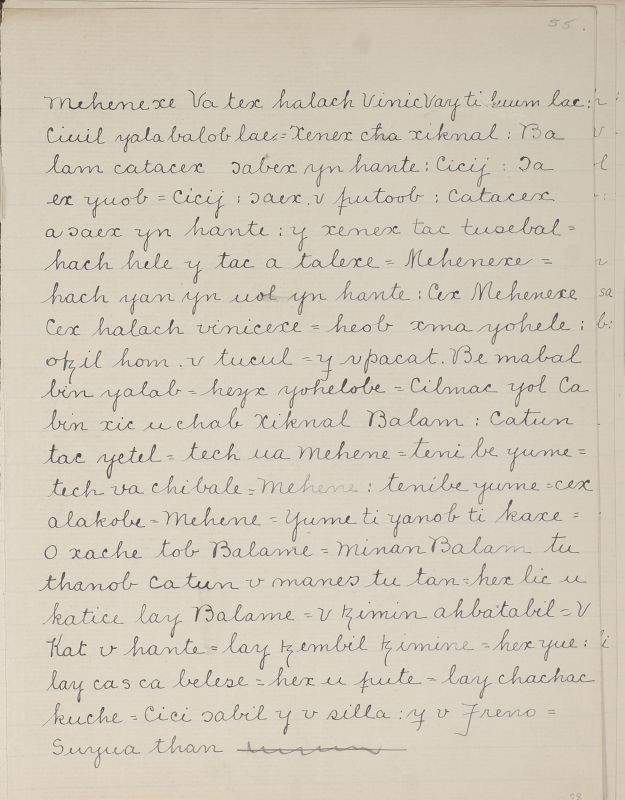 55.
Mehenexe Va tex halach VinicVay ti luum lae:
Ciuil yalabalob lae:=Xenex cħa xiknal: Ba
lam catacex ɔabex yn hante: Cicij: ɔa
ex yuob = Cicij: ɔaex. v putoob: Catacex
a ɔaex yn hante: y xenex tac tusebal=
hach hele y tac a talexe = Mehenexe =
hach yan yn uol yn hante: Cex Mehenexe
Cex halach vinicexe = heob xma yohele:
oꜩil hom. v tucul = y vpacat. Be mabal
bin yalab = heyx yohelobe = Cilmac yol Ca
bin xic u chab Xiknal Balam: Catun
tac yetel = tech ua Mehene = teni be yume =
tech va chibale = Mehene: tenibe yume =cex
alakobe = Mehene = Yume ti yanob ti kaxe =
O xache tob Balame = Minan Balam tu
thanob Catun v manes tu tan = hex lic u
katice lay Balame = v ꜩimin ahbatabil = V
Kat v hante = lay ꜩembil ꜩimine = hex yue:
lay cas ca belese = hex u pute = lay chachac
kuche = Cici ɔabil y v silla: y v Freno =
Suyua than